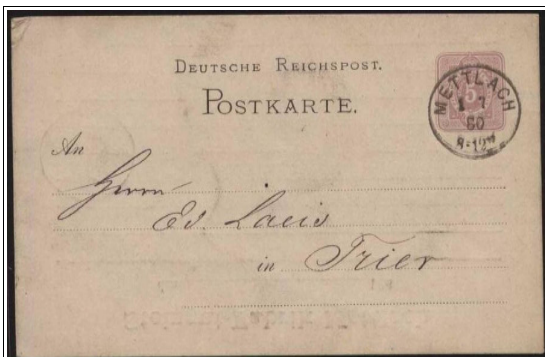 DEUTSCHE REICHSPOST.
POSTKARTE.
5
METTLACH
1 7
80
8-12V
An
Herrn
Ed. Laeis
in Trier